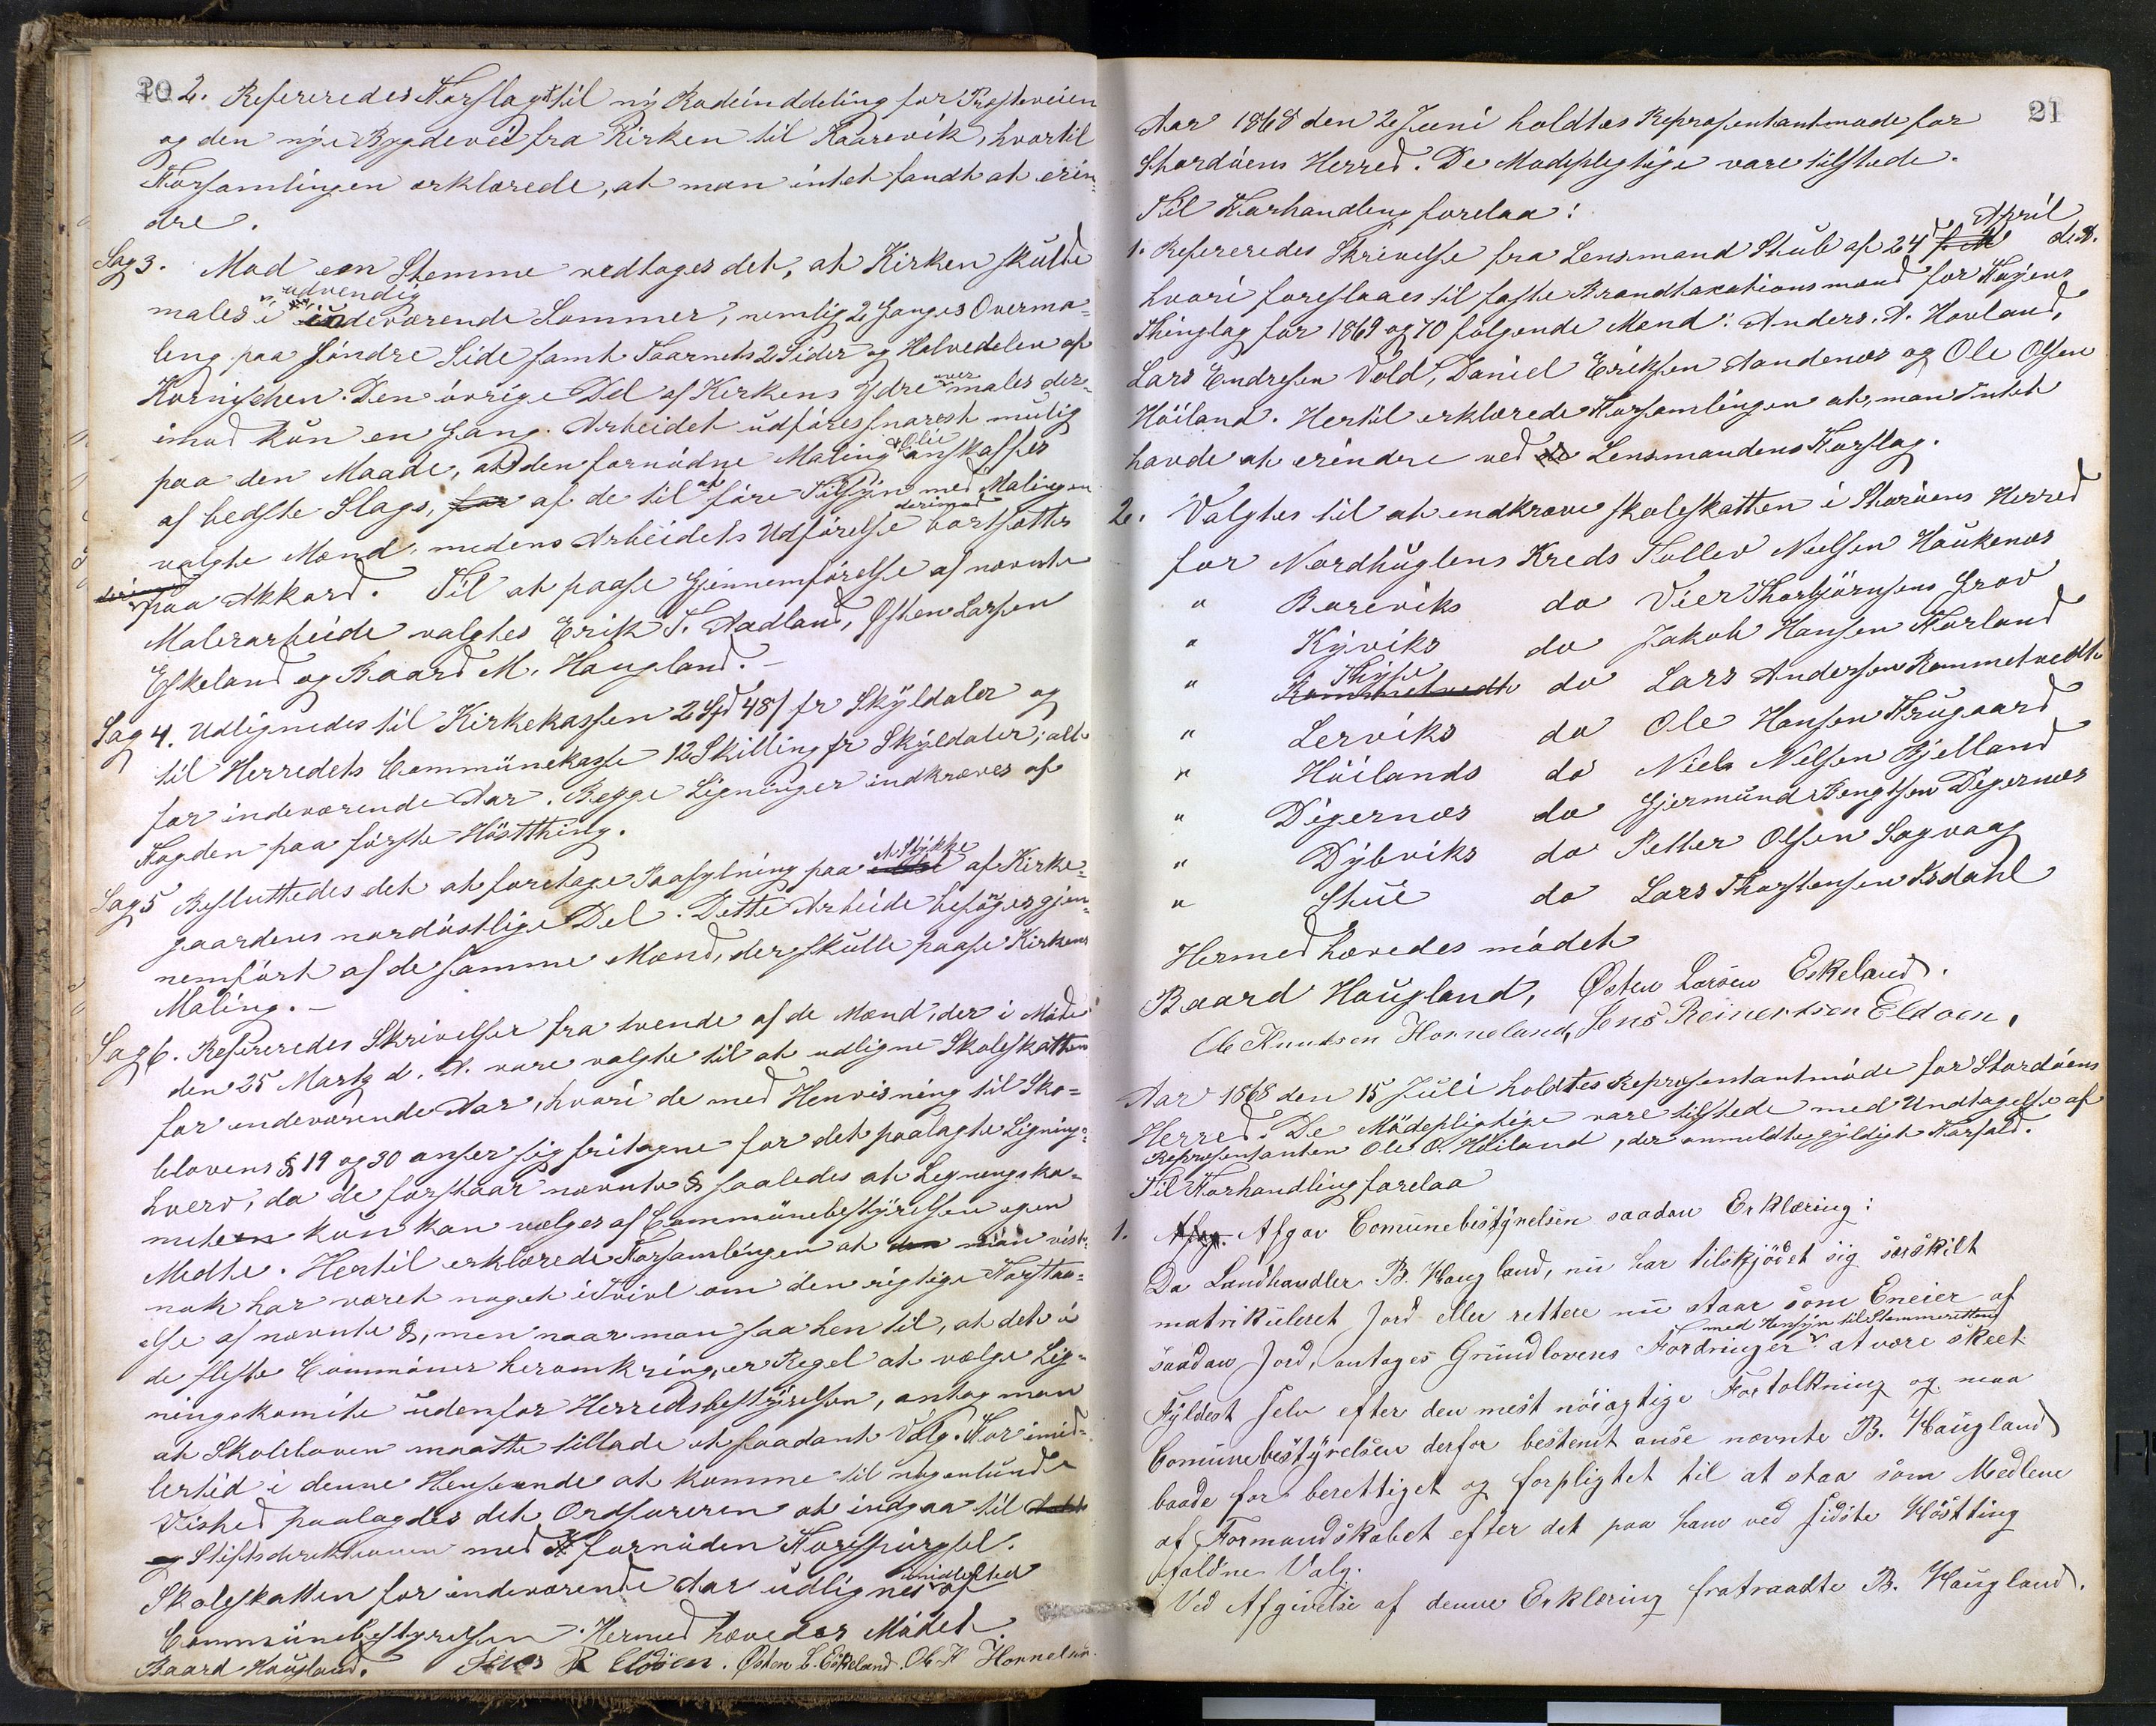 20
2. Refereredes Forslag til ny Rodeinddeling for Præsteveien
og den nye Bygdevei fra Kirken til Kaarevik, hvortil
Forsamlingen erklærede, at man intet fandt at erin-
dre.
Sag 3. Mod een Stemme vedtages det, at Kirken skulde
udvendig
males i indeværende Sommer, nemlig 2 Ganges Overma-
ling paa Söndre Side samt Taarnets 2 Sider og Halvedelen af
Kornischen. Den övrige Del af Kirkens Ydre overmales der-
imod kun en Gang. Arbeidet udföres snarest mulig
paa den Maade, at den fornödne Maling & Olie anskaffes
af bedste Slags, for af de til at före Tilsyn med Malingen
valgte Mænd, medens Arbeidets Udförelse derimod bortsættes
paa Akkord. Til at paase Gjennemförelse af nævnte
Malerarbeide valgtes Erik T. Aadland, Østen Larsen
Eskeland og Baard M. Haugland. —
Sag 4. Udlignedes til Kirkekassen 2 Spd 48 s pr Skyldaler og
til Herredets Communekasse 12 Skilling pr Skyldaler; alt
for indeværende Aar. Begge Ligninger indkræves af
Fogden paa förste Höstthing.
Sag 5 Besluttedes det at foretage Paafylning paa et Stykke af Kirke-
gaardens nordöstlige Del. Dette Arbeide besörges gjen-
nemfört af de samme Mænd, der skulle paase Kirkens
Maling. —
Sag 6. Refereredes Skrivelser fra tvende af de Mænd, der i Möde
den 25 Martz d. A. vare valgte til at udligne Skoleskatten
for indeværende Aar, hvori de med Henvisning til Sko-
lelovens § 19 og 30 anser sig fritagne for det paalagte Lignings-
hverv, da de forstaar nævnte § saaledes at Ligningsko-
miteen kun kan vælges af Communebestyrelsen egen
Midte. Hertil erklærede Forsamlingen at man vist-
nok har været noget i Tvivl om den rigtige Forstaa-
else af nævnte §, men naar man saa hen til, at det i
de fleste Communer heromkring, er Regel at vælge Lig-
ningskomite udenfor Herredsbestyrelsen, antog man
at Skoleloven maatte tillade et saadant Valg. For imid-
lertid i denne Henseende at komme til nogenlunde
Vished paalagdes det Ordföreren at indgaa til
Stiftsdirektionen med fornöden Forespörgsel.
Skoleskatten for indeværende Aar udlignes imidlertid af
Communebestyrelsen. Hermed hævedes Mödet.
Baard Haugland. Jens R Eldöen. Østen L. Eskeland. Ole K Hornelan
21
Aar 1868 den 2 Juni holdtes Repræsentantmöde for
Stordöens Herred. De Mödepligtige vare tilstede.
Til Forhandling forelaa:
1. Refereredes Skrivelse fra Lensmand Stub af 24d April d. A.
hvori foreslaaes til faste Brandtaxationsmænd for Føyens
Thinglag for 1869 og 70 følgende Mænd: Anders. A. Hovland,
Lars Endresen Vold, Daniel Eriksen Sandenæs og Ole Olsen
Höiland. Hertil erklærede Forsamlingen at, man Intet
havde at erindre ved Lensmandens Forslag.
2. Valgtes til at indkræve skoleskatten i Storöens Herred
for Nordhuglens Kreds Tollev Nielsen Haukenæs
" Bareviks do Vier Thorbjörnsens Grov
" Kyviks do Jakob Hansen Forland
" Thyse do Lars Andersen Rommetvedt
" Lerviks do Ole Hansen Frugaard
" Höilands do Niels Nilsen Bjelland
" Digernæs do Gjermund Bengtsen Digernæs
" Dybviks do Petter Olsen Sagvaag
" Stue do Lars Thorstensen Isdahl
Hermed hævedes mödet
Baard Haugland, Østen Larsen Eskeland.
Ole Knudsen Horneland, Jens Reinertsen Eldöen,
Aar 1868 den 15 Juli holdtes Repræsentantmöde for Stordöens
Herred. De Mödepligtige vare tilstede med Undtagelse af
Repræsentanten Ole O. Höiland, der anmeldte gyldigt Forfald.
Til Forhandling forelaa
1. Afgav Comunebestyrelsen saadan Erklæring:
Da Landhandler B. Haugland, nu har tilskjödet sig særskilt
matrikuleret Jord eller rettere nu staar som Eneier af
saadan Jord, antages Grundlovens Fordringer med Hensyn til Stemmeretten at være skeet
Fyldest selv efter den mest nöiagtige Fortolkning og maa
Comunebestyrelsen derfor bestemt anse nævnte B. Haugland
baade for berettiget og forpligtet til at staa som Medlem
af Formandskabet efter det paa ham ved sidste Höstting
faldne Valg.
Ved Afgivelse af denne Erklæring fratraadte B. Haugland.